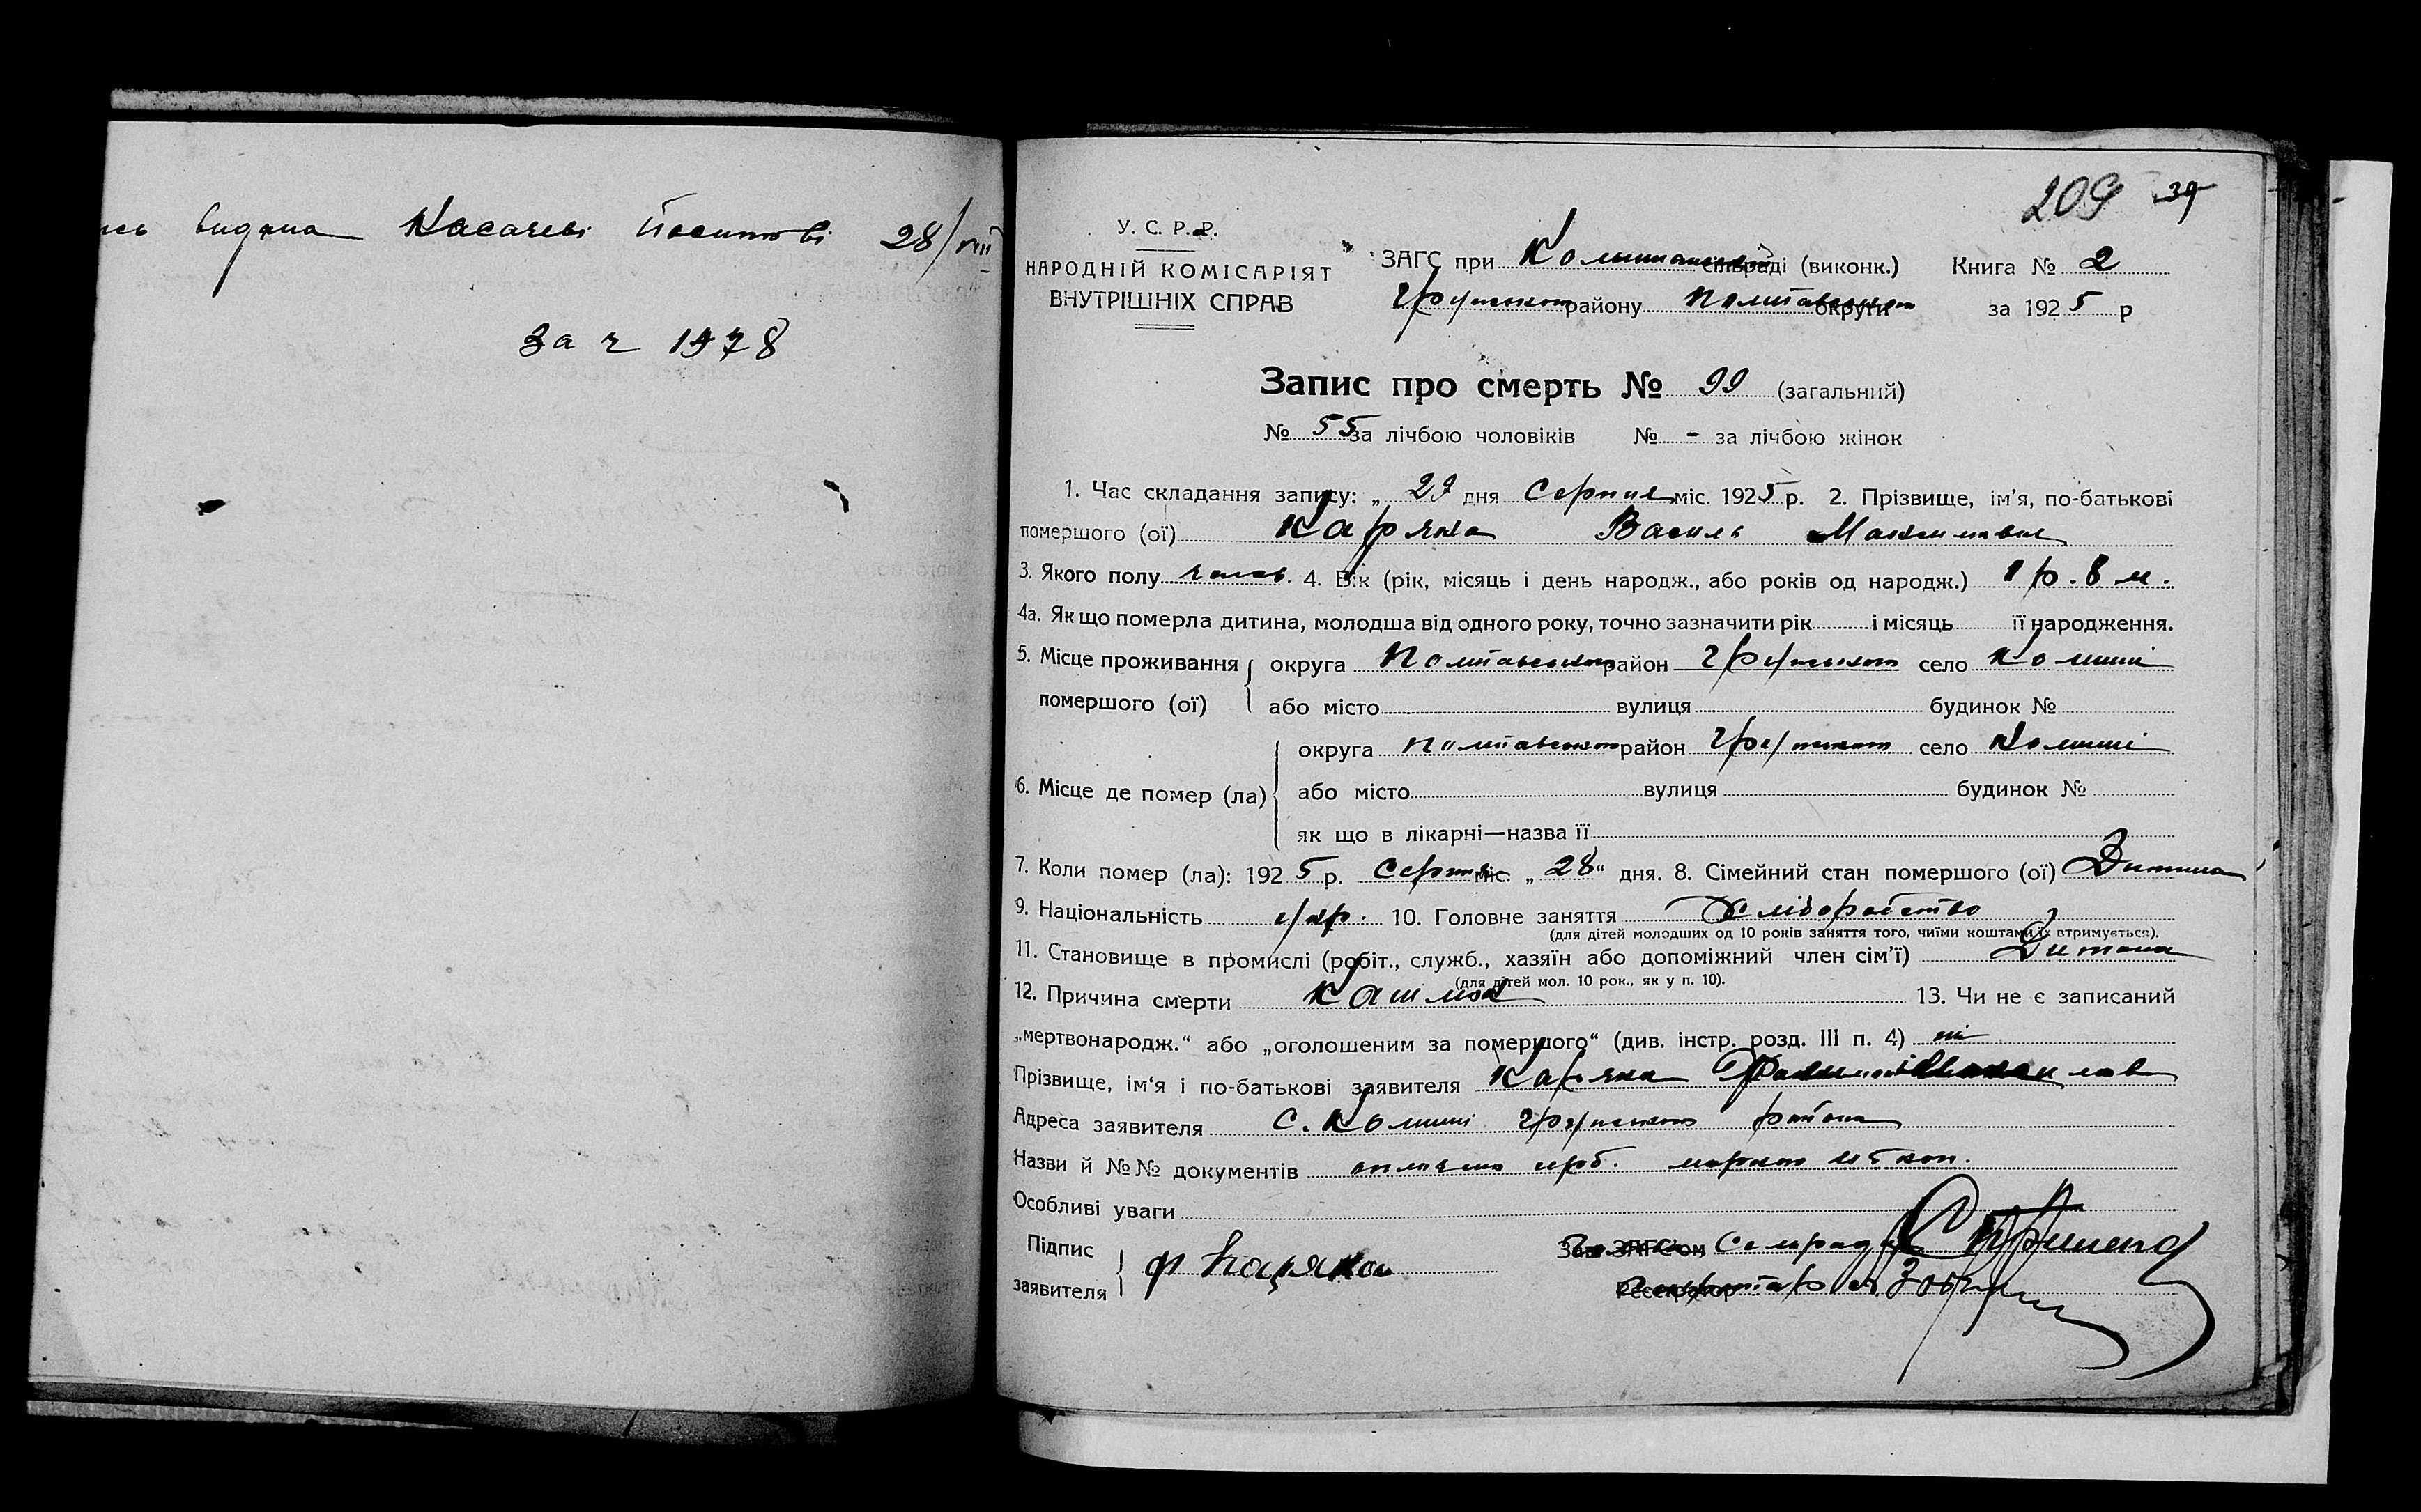 видана Касачеві 28/VIII
за ч 1978
209 39
У. С. Р. Р.
НАРОДНІЙ КОМІСАРІЯТ
ВНУТРІШНІХ СПРАВ
ЗАГС при сільраді (виконк.) Книга № 2
Грунського району Полтавського округи за 1925 р
Запис про смерть № 99 (загальний)
№ 55 за лічбою чоловіків № - за лічбою жінок
1. Час складання запису: „ 29 дня Серпня міс. 1925 р. 2. Прізвище, ім'я, по-батькові
помершого (ої) Каряка Василь Максимович
3. Якого полу чолов. 4. Вік (рік, місяць і день народж., або років од народж.) 1 р. 8 м.
4а. Як що померла дитина, молодша від одного року, точно зазначити рік і місяць її народження.
5. Місце проживання округа Полтавського район Грунського село
помершого (ої) або місто вулиця будинок №
округа Полтавського район Грунського село
6. Місце де помер (ла) або місто вулиця будинок №
як що в лікарні—назва її
7. Коли помер (ла): 1925 р. Серпня міс. „ 28 “ дня. 8. Сімейний стан помершого (ої) Дитина
9. Національність укр. 10. Головне заняття Хліборобство
(для дітей молодших од 10 років заняття того, чиїми коштами їх втримується).
11. Становище в промислі (робіт., служб., хазяїн або допоміжний член сім'ї) Дитина
(для дітей мол. 10 рок., як у п. 10).
12. Причина смерти Кашлюк 13. Чи не є записаний
„мертвонародж.“ або „оголошеним за помершого“ (див. інстр. розд. III п. 4) ні
Прізвище, ім'я і по-батькові заявителя Каряка
Адреса заявителя С. Грунського района
Назви й №№ документів оплачено герб. маркою коп.
Особливі уваги
Підпис
заявителя ф Каряка
Зав. ЗАГС'ом Сельради
Реєстратор